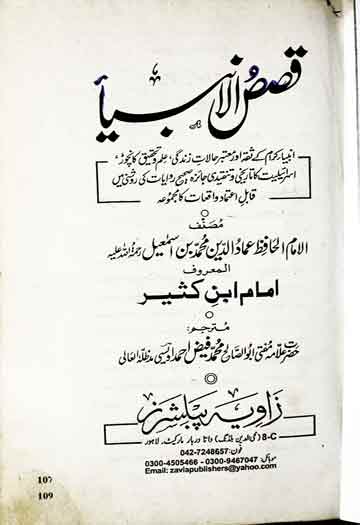 قصص الانبیاء
انبیاء کرام کے ثقہ اور معتبر حالاتِ زندگی، علم و تحقیق کا نچوڑ،
اسرائیلیت کا تاریخی و تنقیدی جائزہ صحیح روایات کی روشنی میں
قابلِ اعتماد واقعات کا مجموعہ
مصنف
الامام الحافظ عماد الدین محمد بن اسمٰعیل رحمۃ اللہ علیہ
المعروف
امام ابنِ کثیر
مترجم:
حضرت علامہ مفتی ابوالصالح محمد فیض احمد اویسی مدظلہ العالی
زاویہ پبلشرز
8-C (محی الدین بلڈنگ) داتا دربار مارکیٹ۔ لاہور
فون: 042-7248657
موبائل: 0300-9467047 - 0300-4505466
Email: zaviapublishers@yahoo.com
107
109